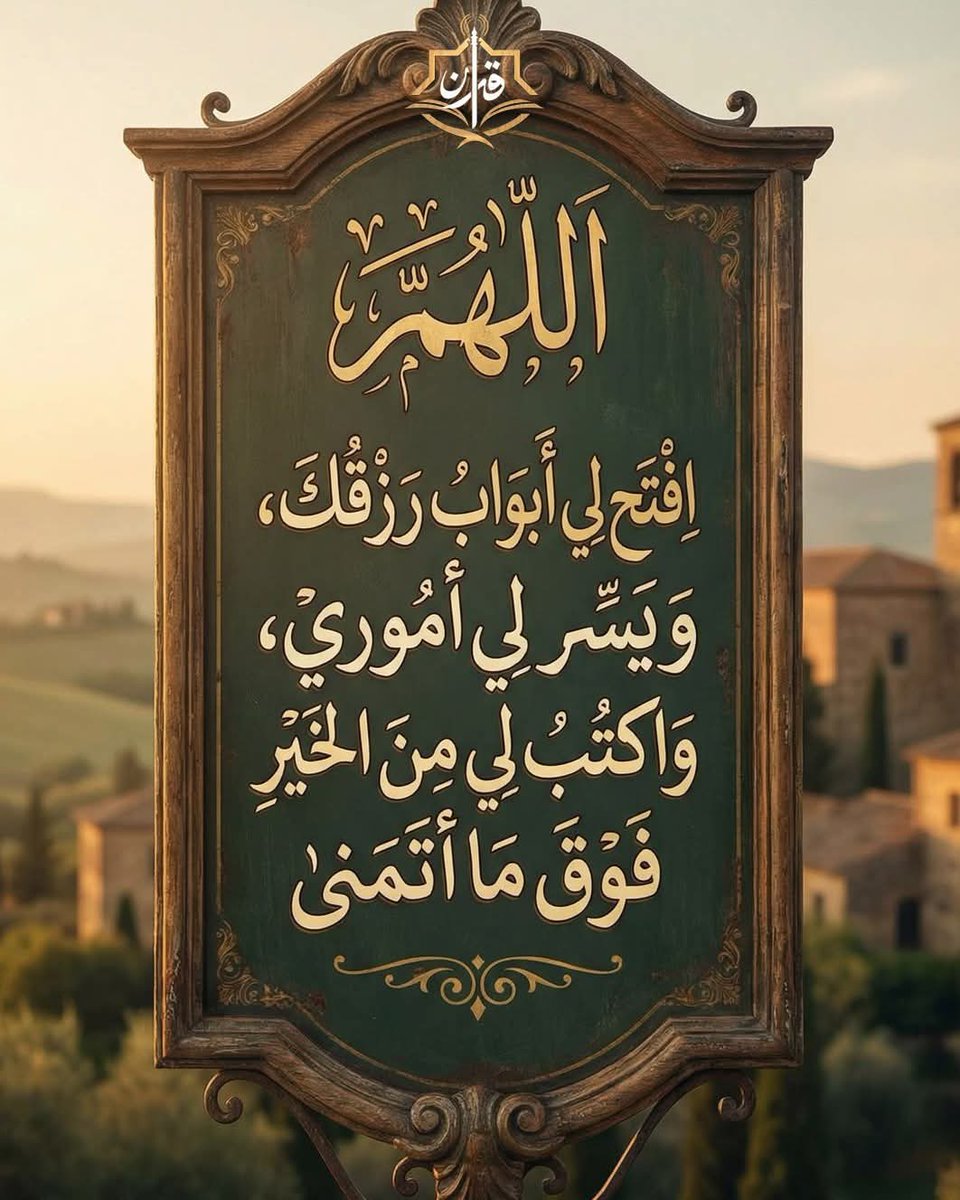 قرآن
اَللّهُمَّ
اِفْتَح لِي أَبوَابُ رَزْقُكَ،
وَيَسِّر لِي أمُورِيْ،
وَاكتُبُ لِي مِنَ الخَيْرِ
فَوْقَ مَا أتَمَنىٰ